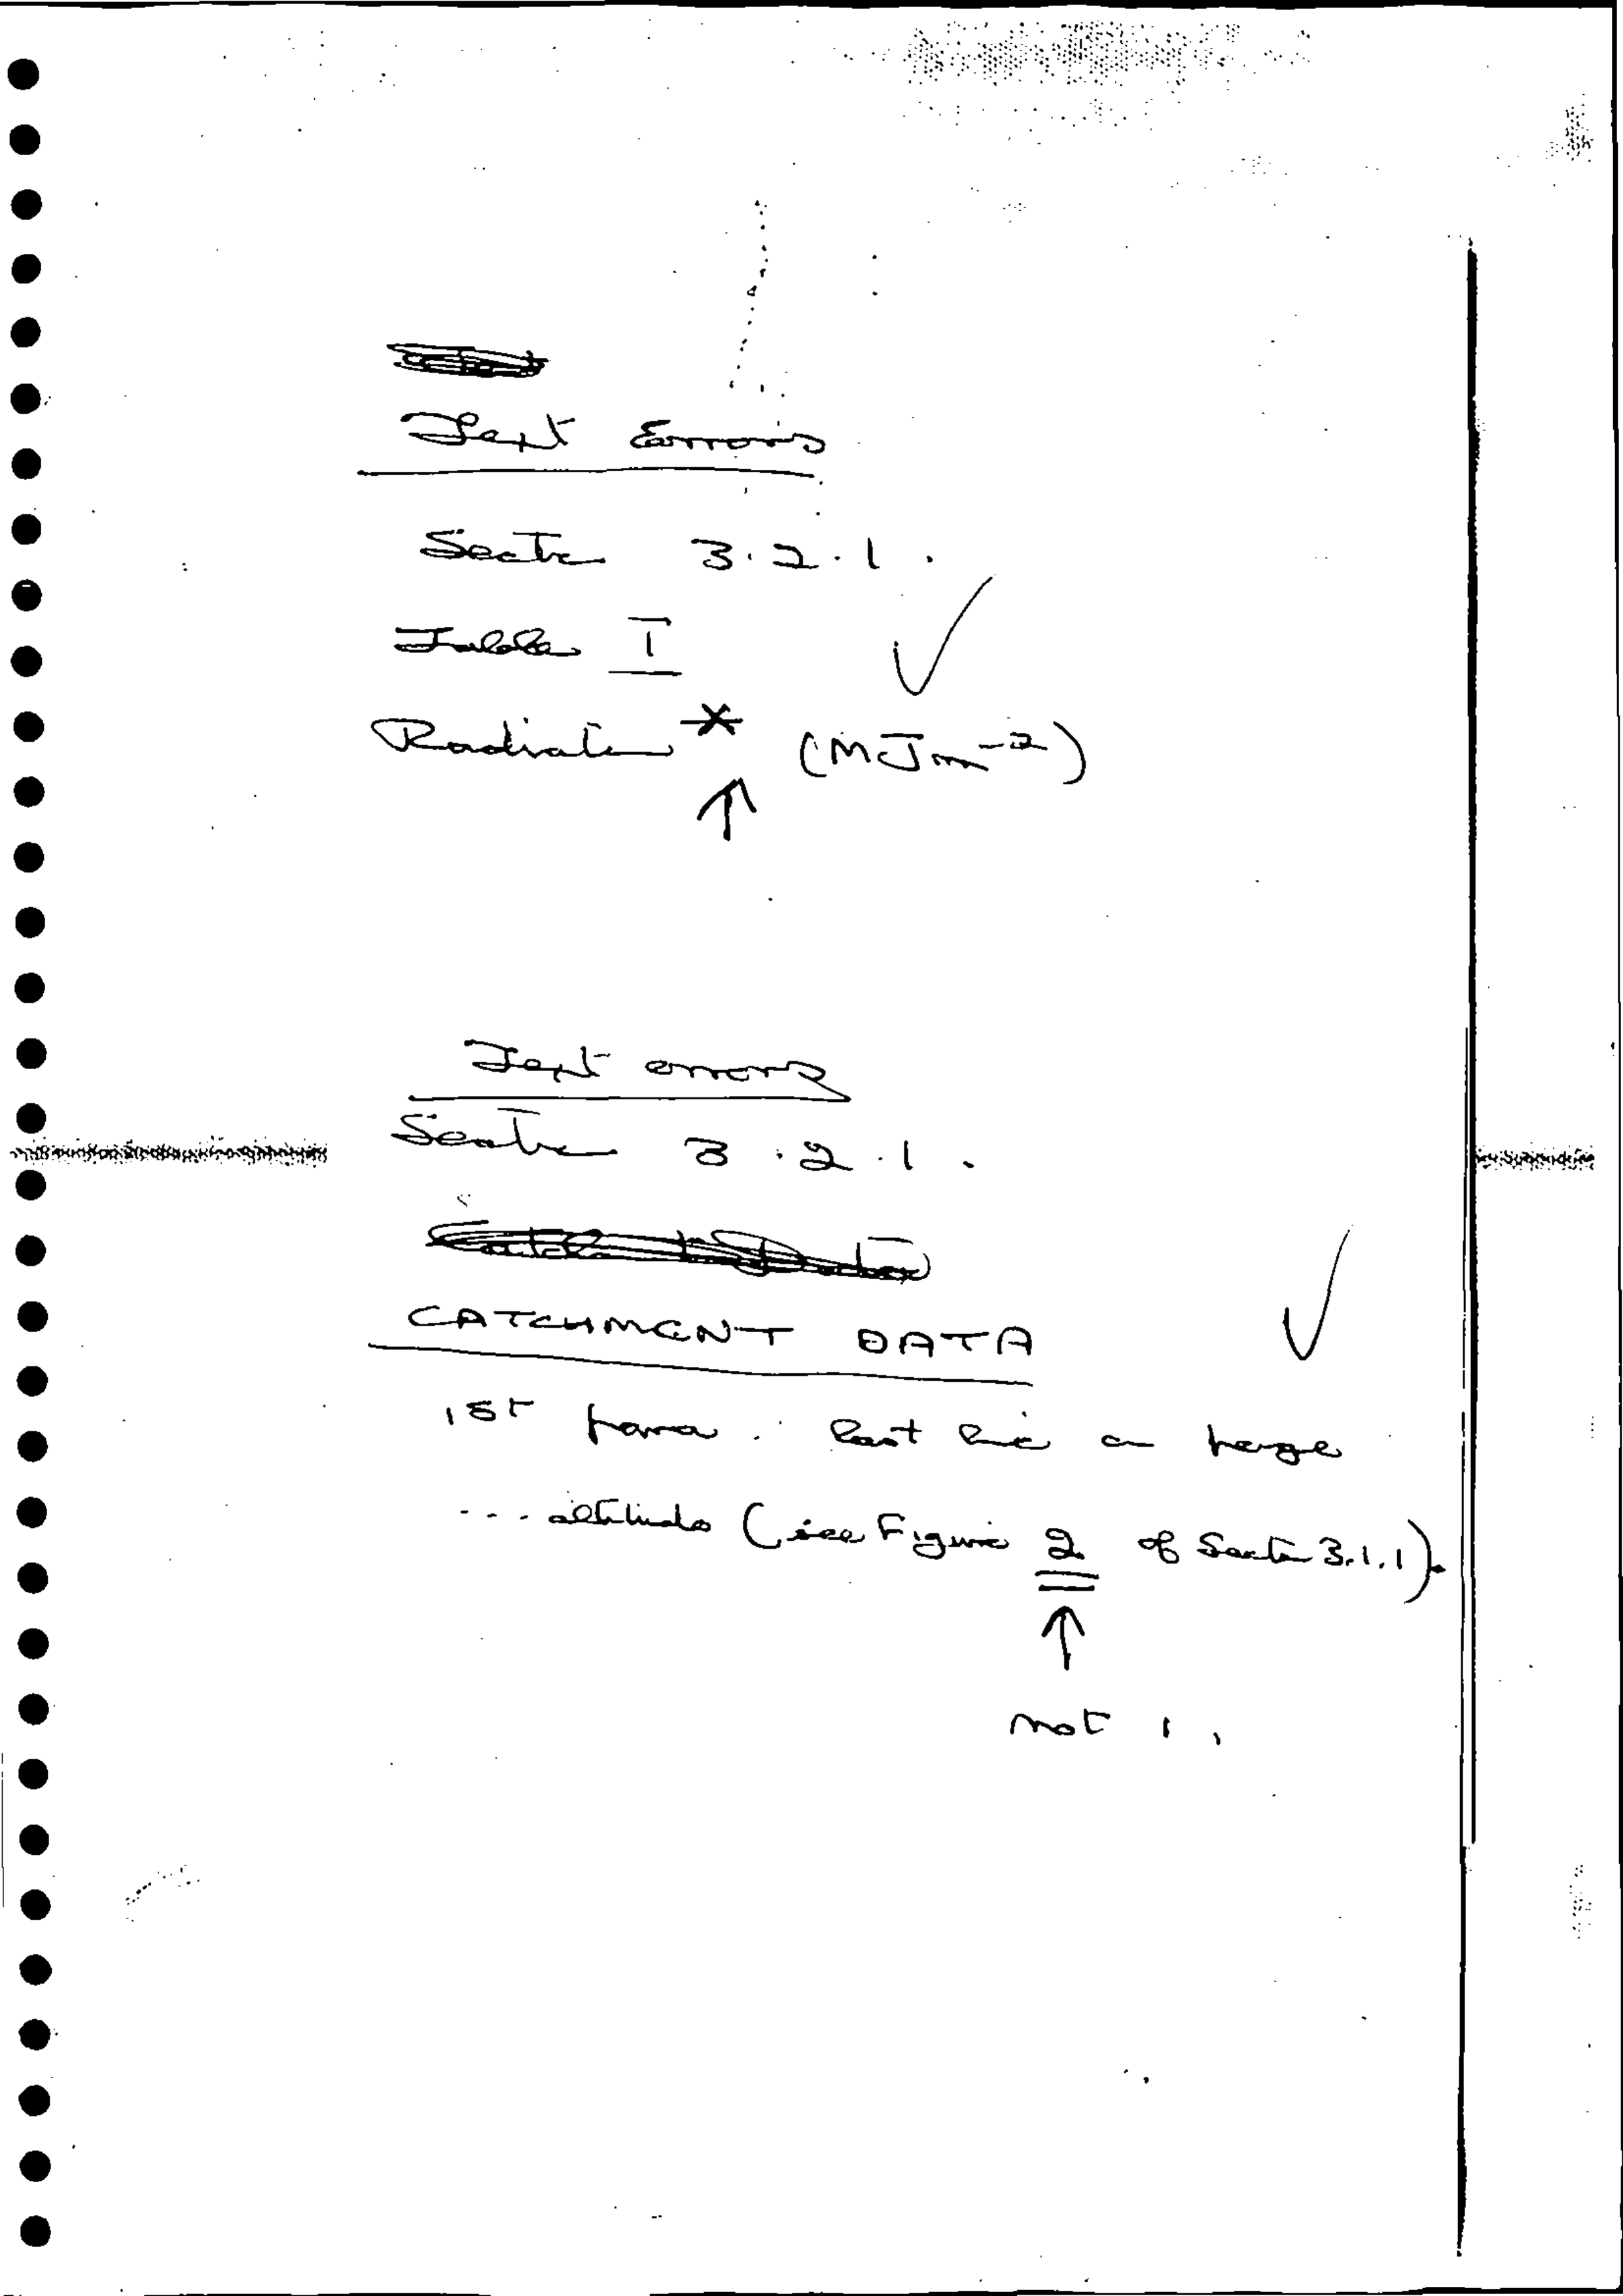 Text Errors
Section 3.2.1.
Table I
Radiation * (MJm⁻²)
Text errors
Section 3.2.1.
CATCHMENT DATA
1st para. last line on page
... altitude (see Figure 2 of Section 3.1.1).
not 1.